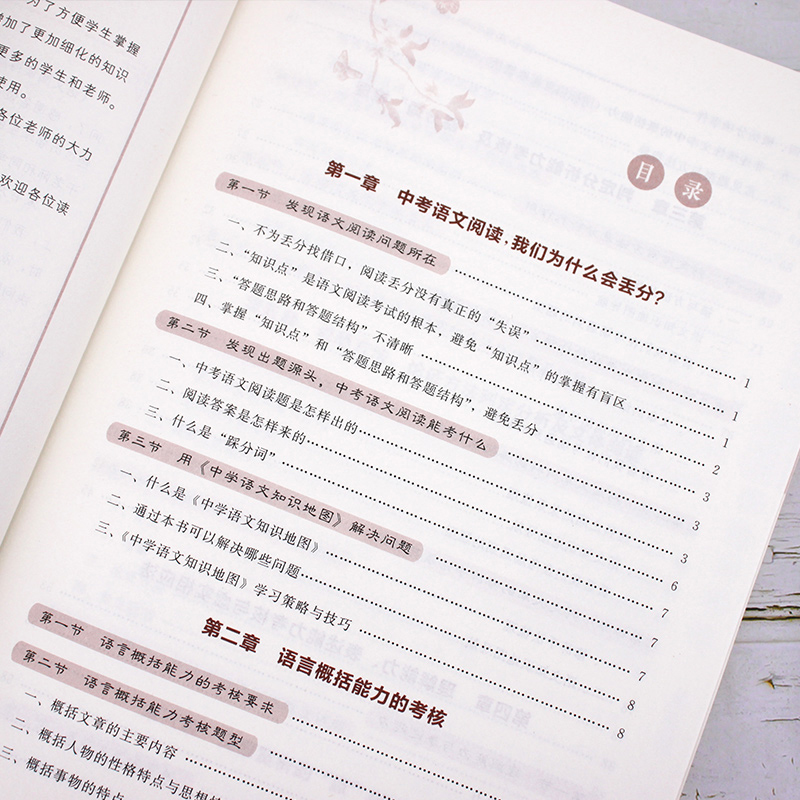 为了方便学生掌握
增加了更加细化的知识
更多的学生和老师。
使用。
各位老师的大力
欢迎各位读
目录
第一章 中考语文阅读，我们为什么会丢分？
第一节 发现语文阅读问题所在 1
一、不为丢分找借口，阅读丢分没有真正的“失误” 1
二、“知识点”是语文阅读考试的根本，避免“知识点”的掌握有盲区 1
三、“答题思路和答题结构”不清晰 2
四、掌握“知识点”和“答题思路和答题结构”，避免丢分 3
第二节 发现出题源头，中考语文阅读能考什么 3
一、中考语文阅读题是怎样出的 3
二、阅读答案是怎样来的 6
三、什么是“踩分词” 7
第三节 用《中学语文知识地图》解决问题 7
一、什么是《中学语文知识地图》 7
二、通过本书可以解决哪些问题 8
三、《中学语文知识地图》学习策略与技巧 8
第二章 语言概括能力的考核
第一节 语言概括能力的考核要求
第二节 语言概括能力考核题型
一、概括文章的主要内容
二、概括人物的性格特点与思想
三、概括事物的特点